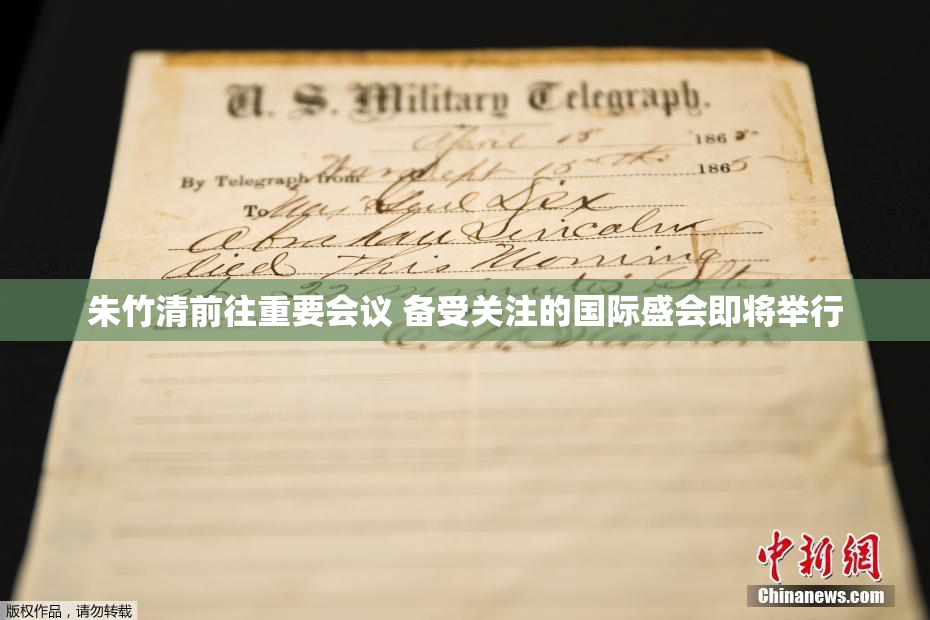 U. S. Military Telegraph.
April 15 1865
By Telegraph from War Dept 15th 1865
To Maj Genl Dix
Abraham Lincoln
died This Morning
22 minutes after
朱竹清前往重要会议 备受关注的国际盛会即将举行
E. M. Stanton
中新网
Chinanews.com
版权作品,请勿转载